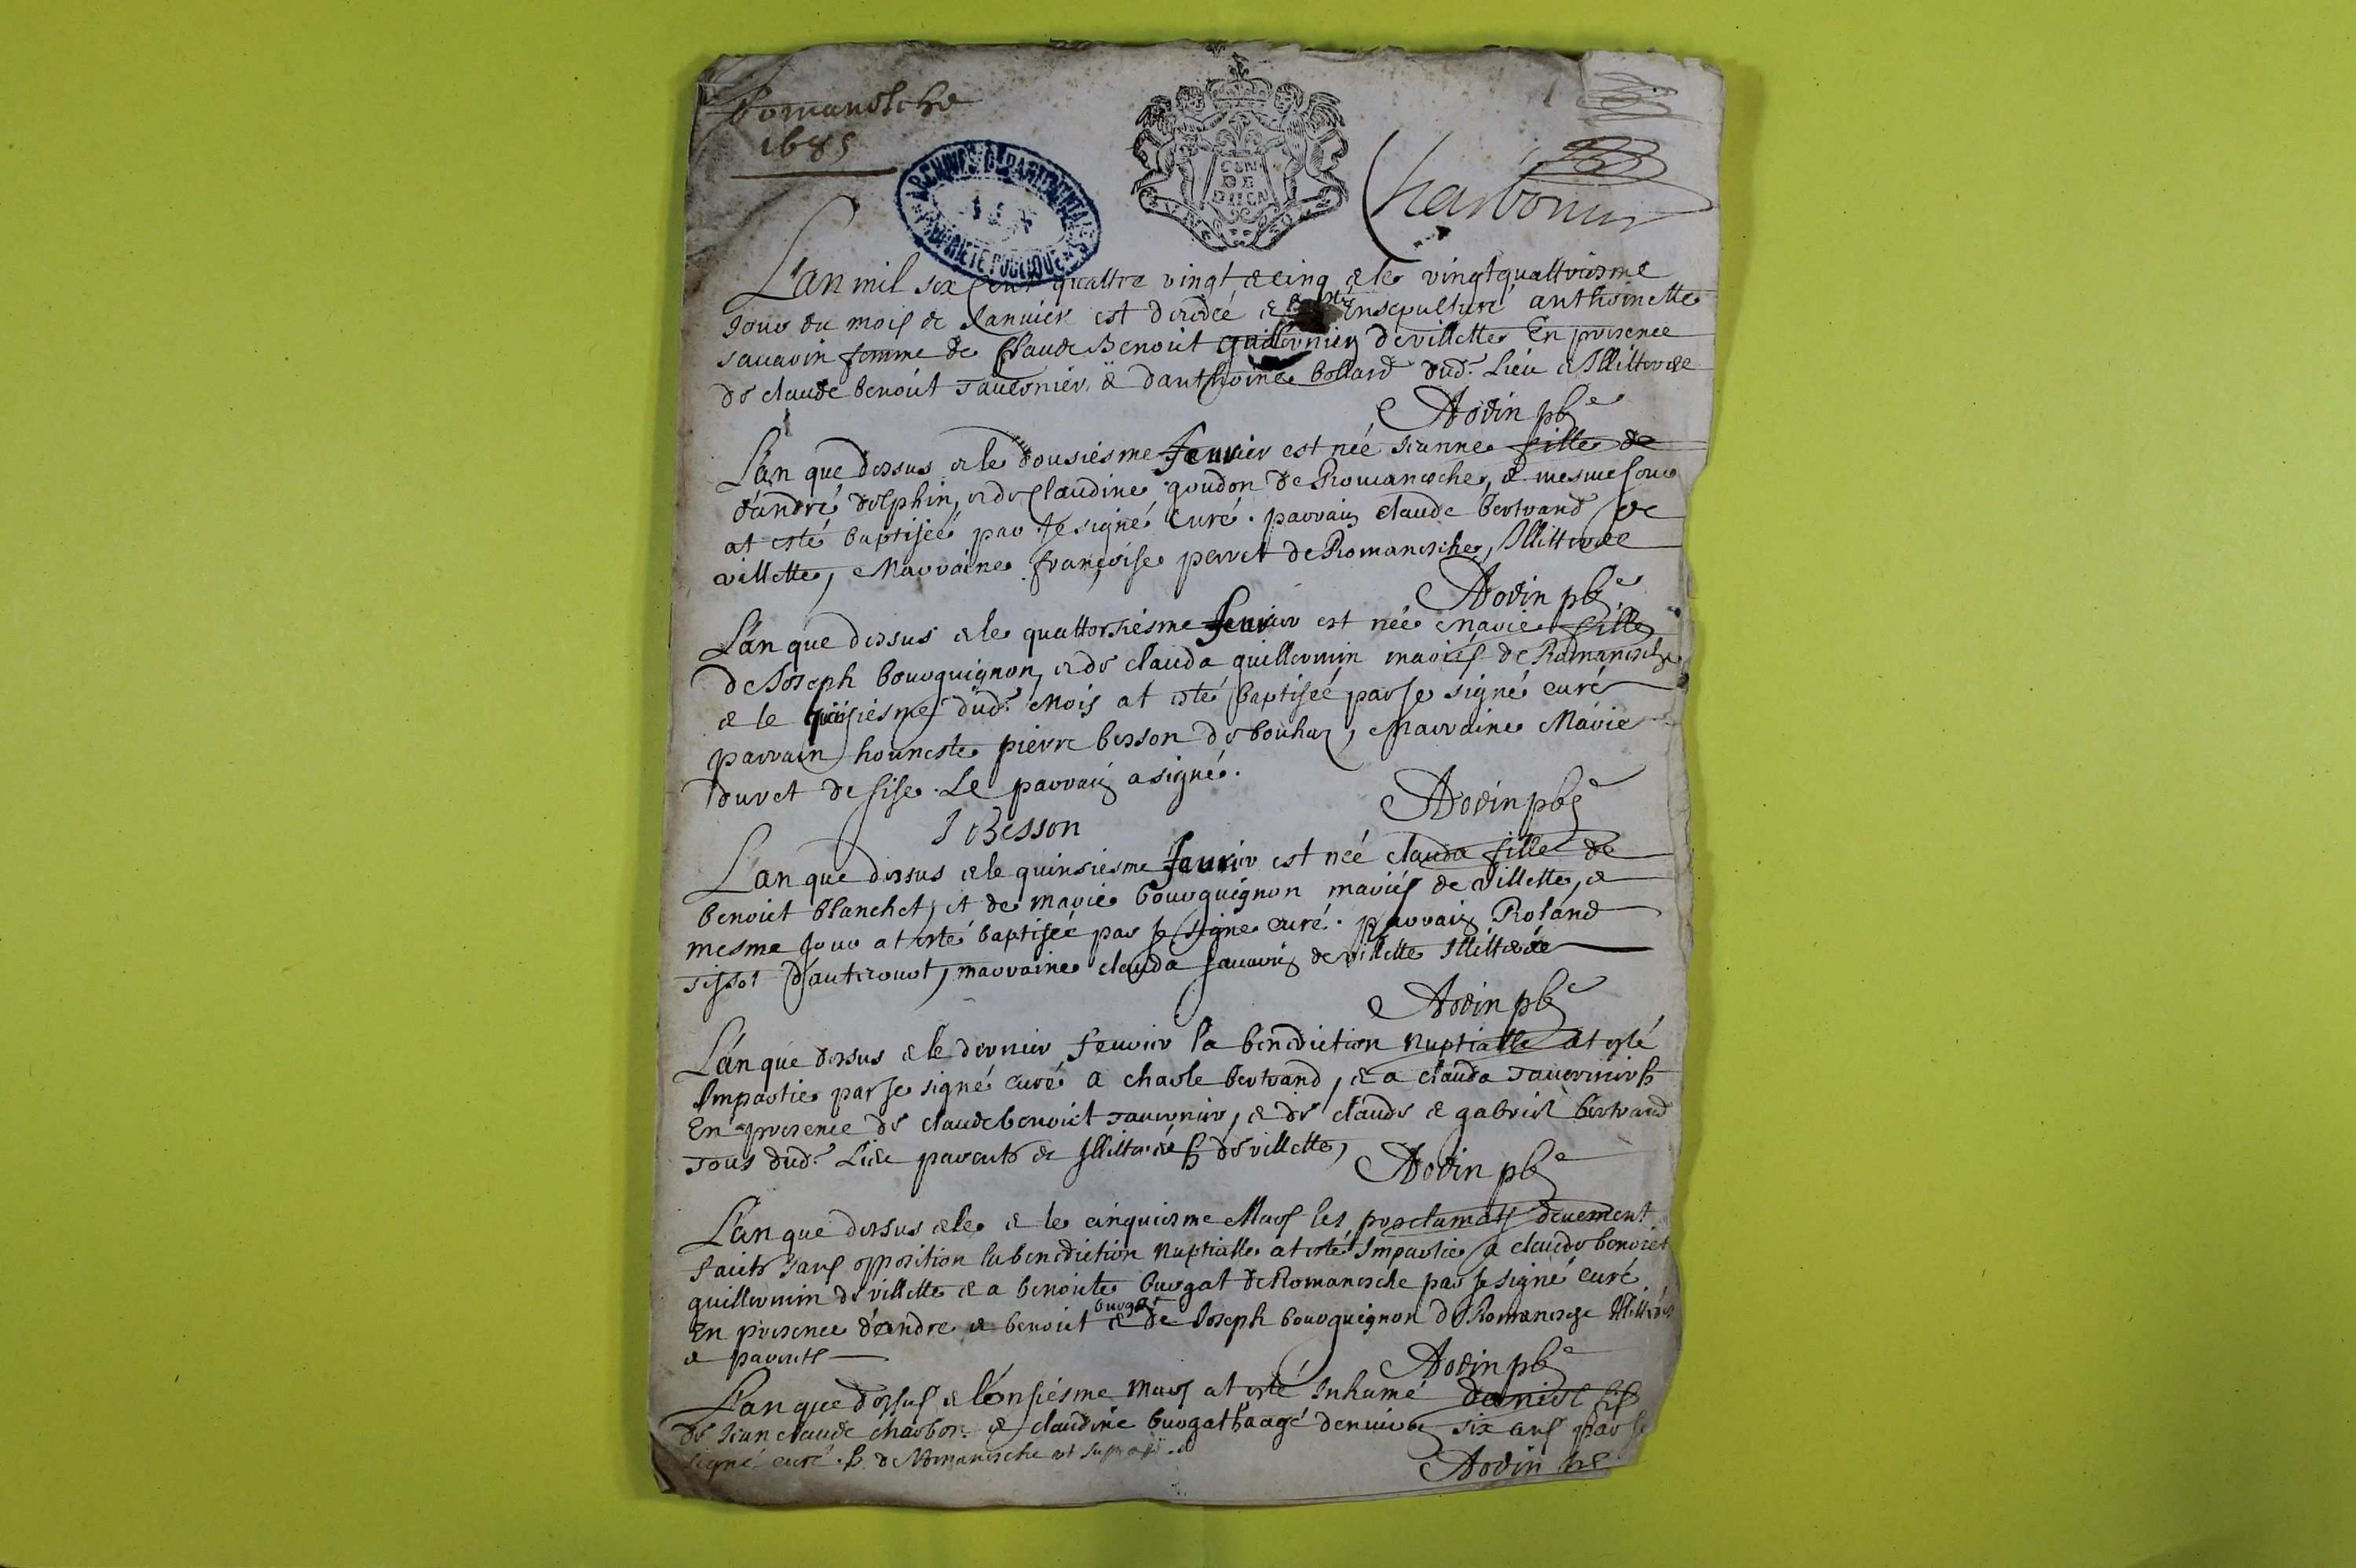 Romanesche
1685
ARCHIVES DEPARTEMENTALES
PROPRIETE PUBLIQUE
GEN
DE
DIION
Charbonnier
L'an mil six cent quattre vingt & cinq & le vingtquattriesme
Jour du mois de Janvier est decedée & Ensepulture anthoinette
savarin femme de Claude Benoict guillermin de villette En presence
de claude benoict Tavernier & d'anthoine bollard dud. Lieu & Illitteres
Aodin pbre
L'an que dessus & le dousiesme feurier est née Jeanne fille de
d'andré dolphin, & de Claudine goudon de Romanesche, & mesme Jour
at esté baptisée par Je signé Curé. parrain claude bertrand de
villette, Marraine françoise perret de Romanesche, Illitteres
Aodin pbre
L'an que dessus & le quattorsiesme feurier est née Marie fille
de Joseph bourguignon, & de clauda guillermin mariés de Romanesche
& le dud. Mois at esté baptisée par Je signé curé
parrain honneste pierre besson de bouhas, Marraine Marie
duret de sise. Le parrain a signé.
Aodin pbre
J Besson
L'an que dessus & le quinsiesme feurier est née clauda fille de
benoict blanchet, et de marie bourguignon mariés de villette, &
mesme Jour at esté baptisée par Je signé curé. parrain Roland
Tissot d'auterouot, marraine clauda savarin de villette Illitteres
Aodin pbre
L'an que dessus & le dernier feurier la benediction nuptialle at esté
Impartie par Je signé curé a charle bertrand, & a clauda Tavernier
En presence de claude benoict Tavernier, & de claude & gabriel bertrand
Tous dud. Lieu parents & Illitterés de villette,
Aodin pbre
L'an que dessus & le & le cinquiesme Mars les proclamats deuement
faicts sans opposition la benediction nuptialle at esté Impartie a claude benoict
guillermin de villette & a benoiste burgat de Romanesche par Je signé curé
En presence d'andre & benoict burgat & de Joseph bourguignon de Romanesche Illitterés
& parents
Aodin pbre
L'an que dessus & l'onsiesme Mars at esté Inhumé daniel fils
de Jean claude charbon & claudine burgat aagé denuiron six ans par Je
signé curé. de Romanesche ut supra
Aodin pbre